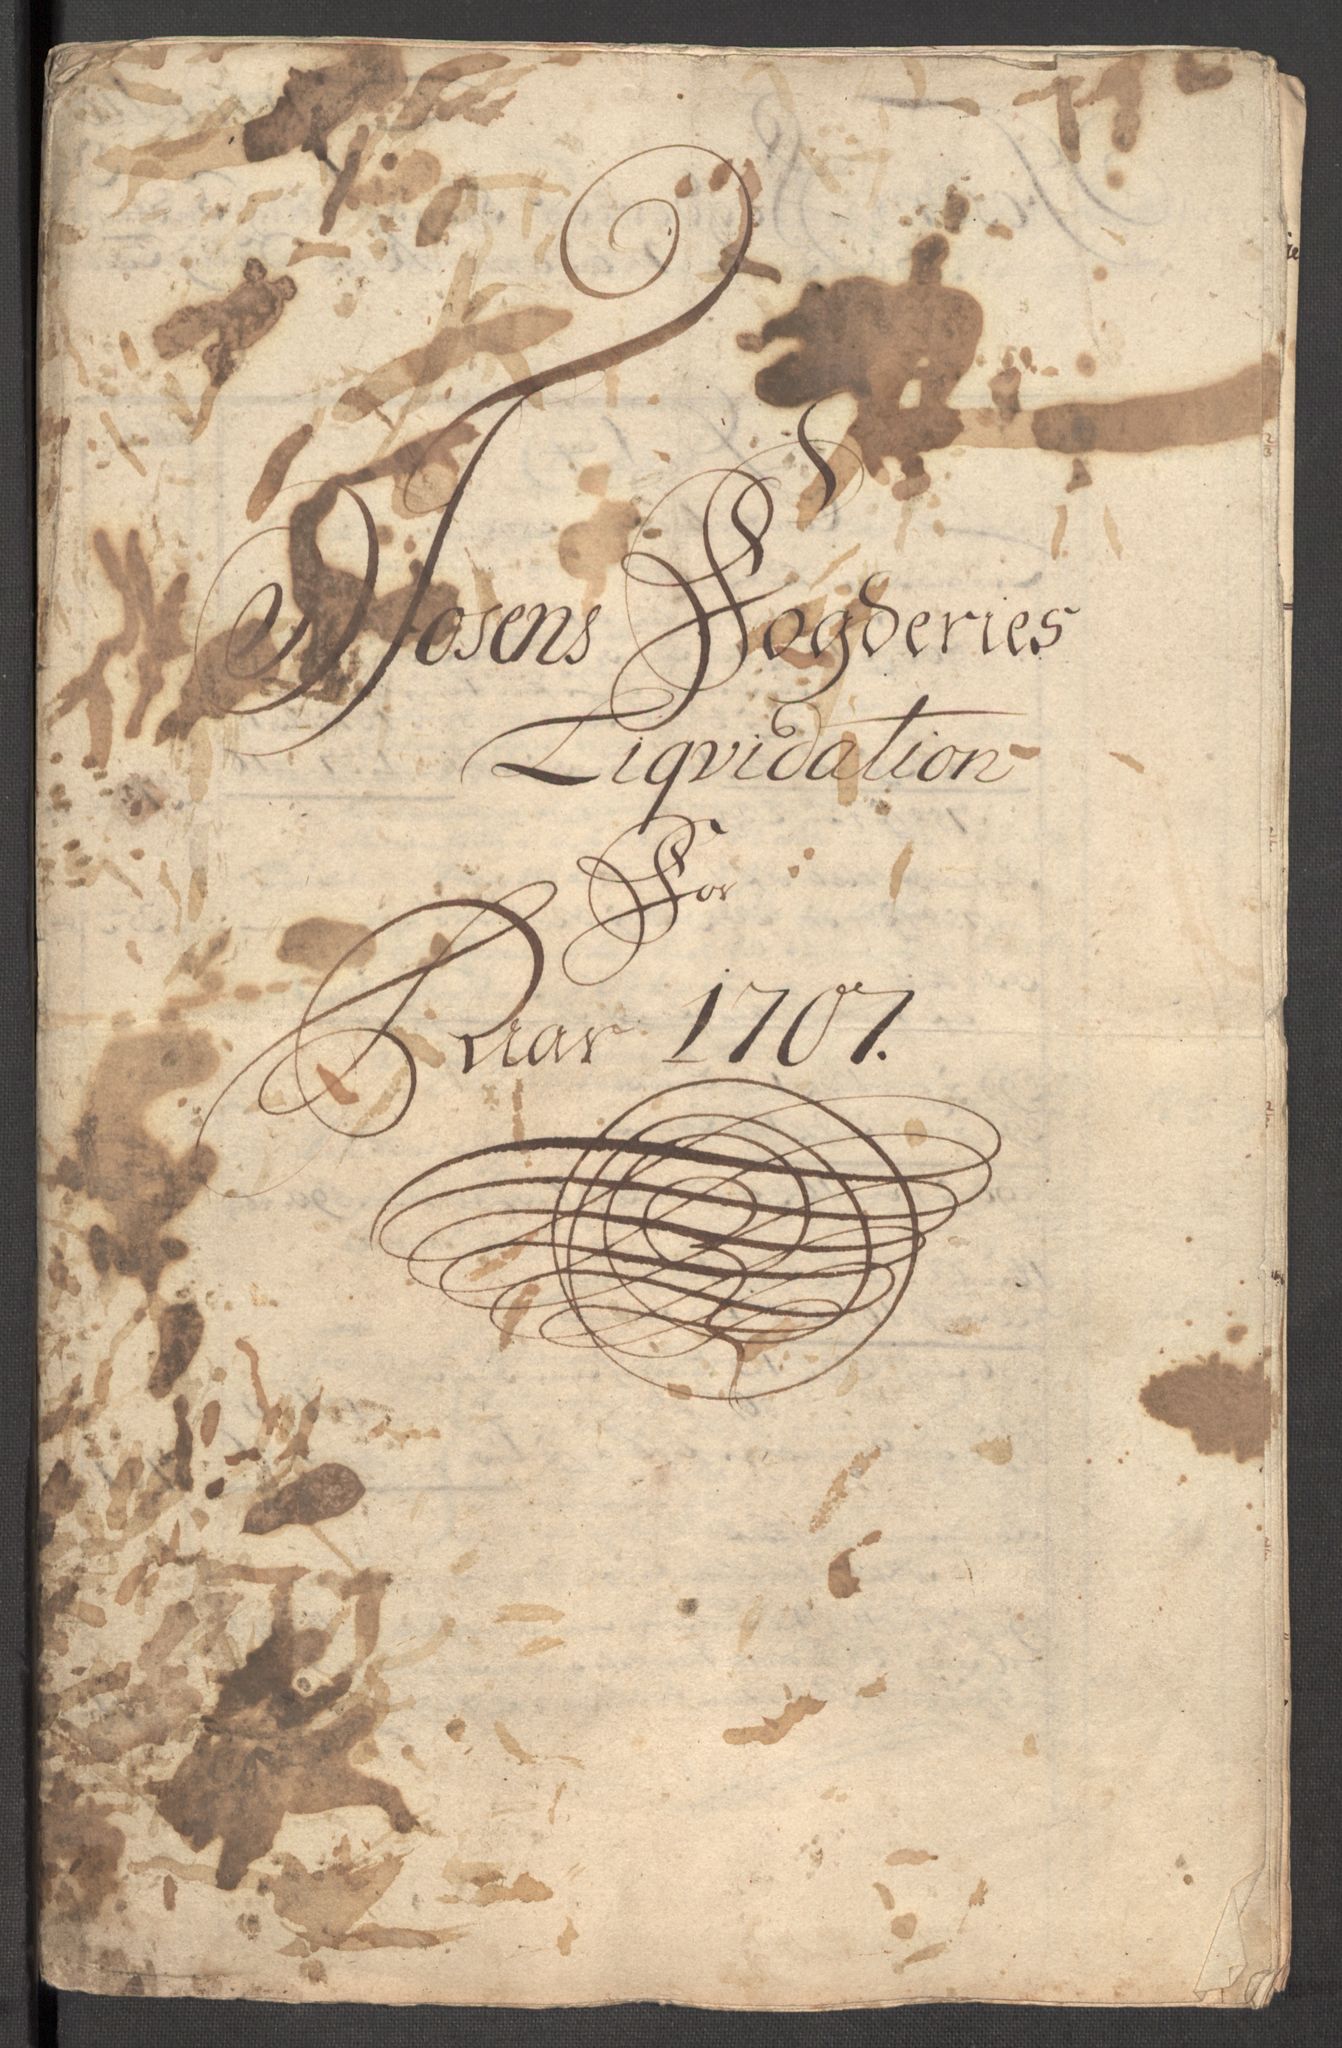 Fosens Fogderies
Liqvidation
For
Aar 1707.